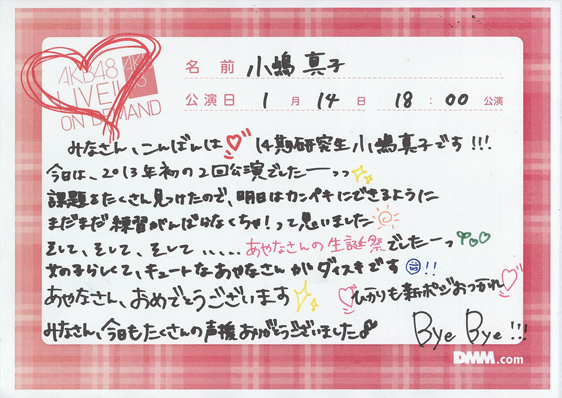 AKB48
LIVE!!
ON DEMAND
AKB
48
名前 小嶋真子
公演日 1月14日 18:00 公演
みなさん、こんばんは♡ 14期研究生小嶋真子です!!!
今日は、2013年初の2回公演でしたーっっ
課題をたくさん見つけたので、明日はカンペキにできるように
まだまだ練習がんばらなくちゃ!って思いました
そして、そして、そして、、、、、あやなさんの生誕祭でしたーっ
女の子らしくて、キュートなあやなさんがダイスキです!!
あやなさん、おめでとうございます ♡ひかりも新ポジおつかれ♡
みなさん、今日もたくさんの声援ありがとうございました♪
Bye Bye!!!
DMM.com